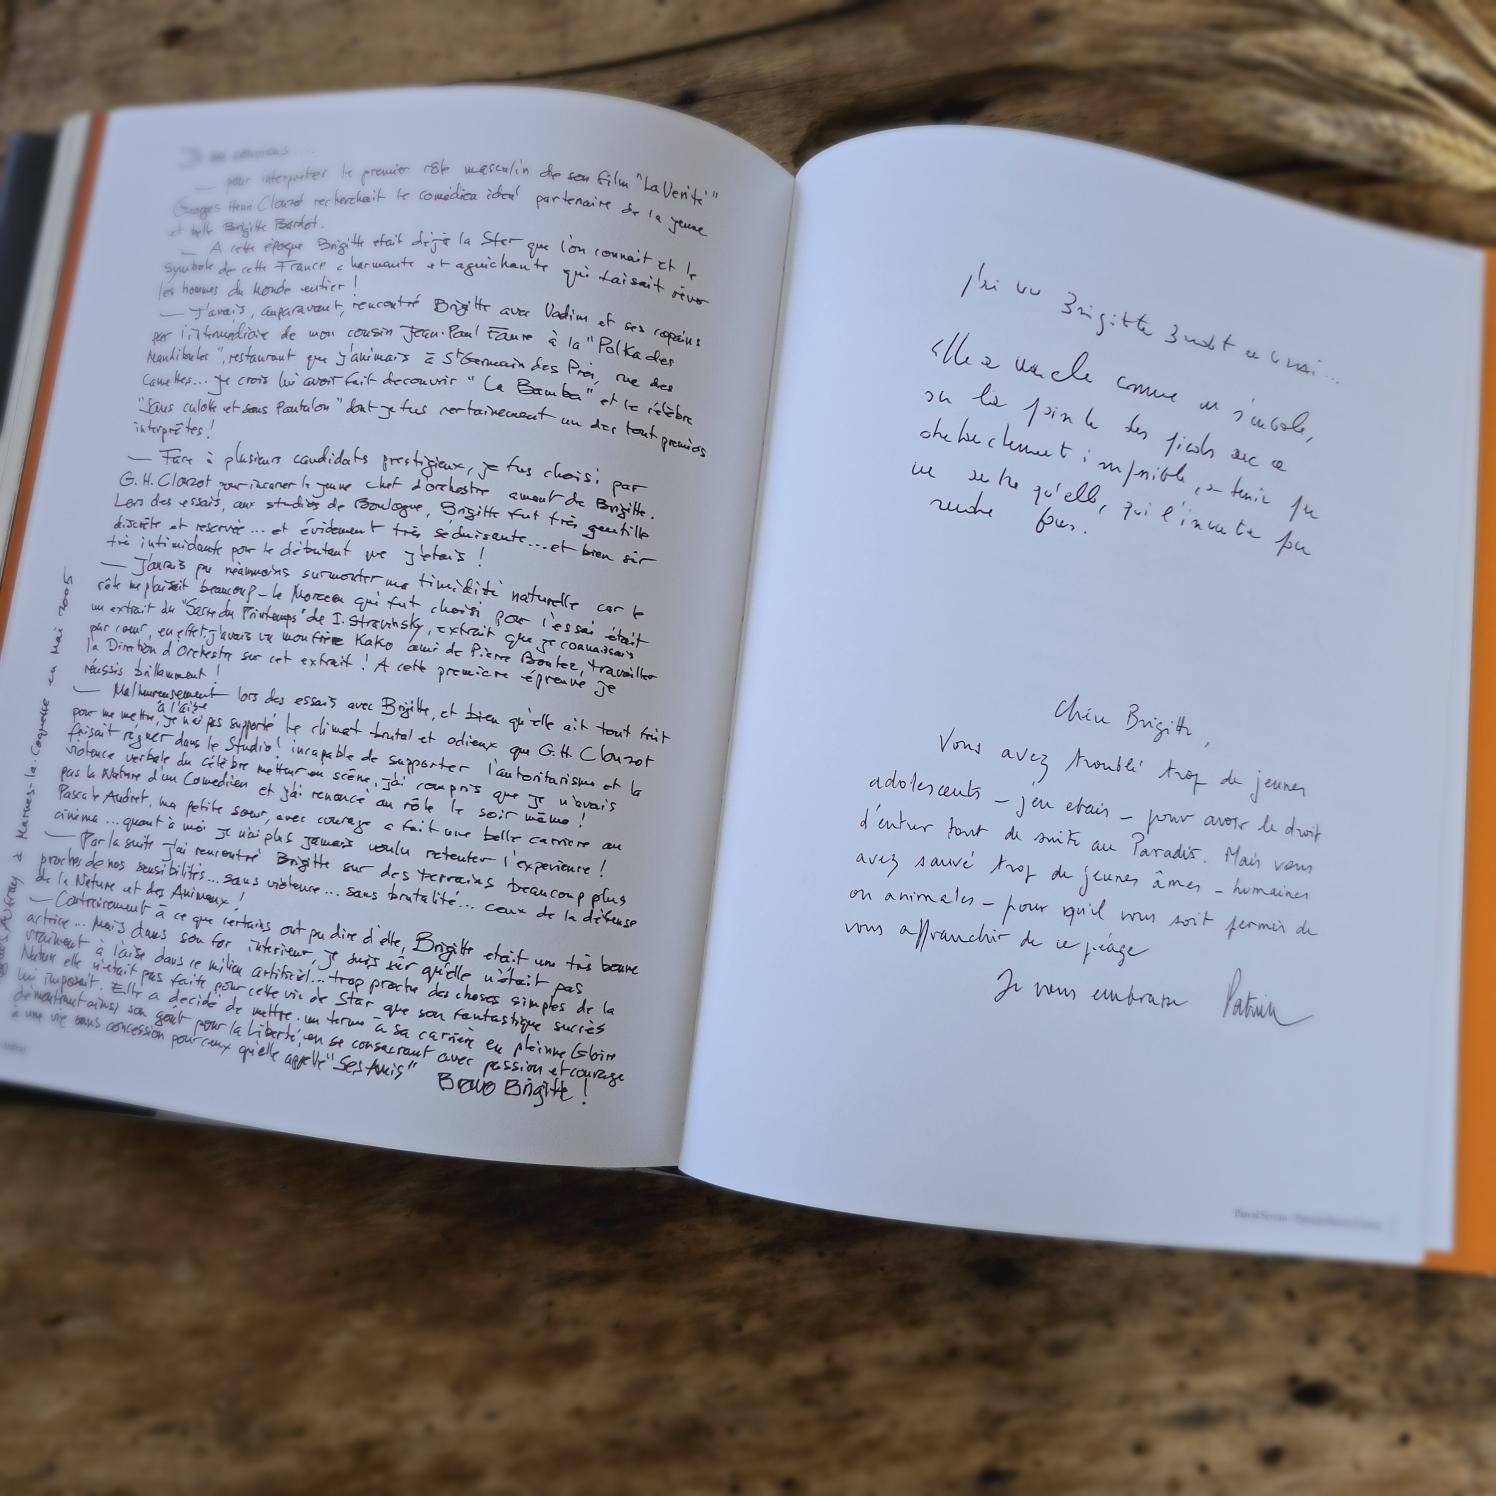 Je me souviens....
— pour interpréter le premier rôle masculin de son film "La Verité"
Georges Henri Clouzot recherchait le comédien idéal partenaire de la jeune
et belle Brigitte Bardot.
— A cette époque Brigitte était déjà la Star que l'on connait et le
symbole de cette France charmante et aguichante qui faisait rêver
les hommes du Monde entier !
— J'avais, auparavant, rencontré Brigitte avec Vadim et ses copains
par l'intermédiaire de mon cousin Jean-Paul Faure à la "Polka des
Mandibules", restaurant que j'animais à St Germain des Prés, rue des
Canettes... je crois lui avoir fait decouvrir "La Bamba" et le célèbre
"Sans culotte et sans Pantalon" dont je fus certainement un des tout premiers
interprètes !
— Face à plusieurs candidats prestigieux, je fus choisi par
G.H. Clouzot pour incarner le jeune chef d'orchestre amant de Brigitte.
Lors des essais, aux studios de Boulogne, Brigitte fut très gentille
discrète et reservée... et évidement très séduisante... et bien sûr
très intimidante pour le débutant que j'étais !
— J'aurais pu néanmoins surmonter ma timidité naturelle car le
rôle me plaisait beaucoup - le Morceau qui fut choisi pour l'essai était
un extrait du "Sacre du Printemps" de I. Stravinsky, extrait que je connaissais
par cœur, en effet, j'avais vu mon frère Kako ami de Pierre Boulez, travailler
la Direction d'Orchestre sur cet extrait ! A cette première épreuve je
réussis brillamment !
— Malheureusement lors des essais avec Brigitte, et bien qu'elle ait tout fait
pour me mettre à l'aise, je n'ai pas supporté le climat brutal et odieux que G.H. Clouzot
faisait régner dans le Studio ! incapable de supporter l'autoritarisme et la
violence verbale du célèbre metteur en scène, j'ai compris que je n'avais
pas la Nature d'un Comedien et j'ai renoncé au rôle le soir même !
Pascale Audret, ma petite sœur, avec courage a fait une belle carrière au
cinéma... quant à moi je n'ai plus jamais voulu retenter l'expérience !
— Par la suite j'ai rencontré Brigitte sur des terrains beaucoup plus
proches de nos sensibilités... sans violence... sans brutalité... ceux de la défense
de la Nature et des Animaux !
— Contrairement à ce que certains ont pu dire d'elle, Brigitte était une très bonne
actrice... Mais dans son for interieur, je suis sûr qu'elle n'était pas
vraiment à l'aise dans ce milieu artificiel... trop proche des choses simples de la
Nature elle n'était pas faite pour cette vie de Star que son fantastique succès
lui imposait. Elle a decidé de mettre un terme à sa carrière en pleine Gloire
démontrant ainsi son goût pour la Liberté, en se consacrant avec passion et courage
à une vie sans concession pour ceux qu'elle appelle "Ses Amis"
Bravo Brigitte !
Aufray à Marnes-la-Coquette en Mai 2005
j'ai vu Brigitte Bardot en vrai...
Elle marche comme on s'envole,
sur la pointe des pieds avec ce
déhanchement impossible à tenir par
une autre qu'elle, qui l'invente pour
rendre fous.
Chère Brigitte,
Vous avez troublé trop de jeunes
adolescents - j'en étais - pour avoir le droit
d'entrer tout de suite au Paradis. Mais vous
avez sauvé trop de jeunes âmes - humaines
ou animales - pour qu'il vous soit permis de
vous affranchir de ce péage
Je vous embrasse Patrick